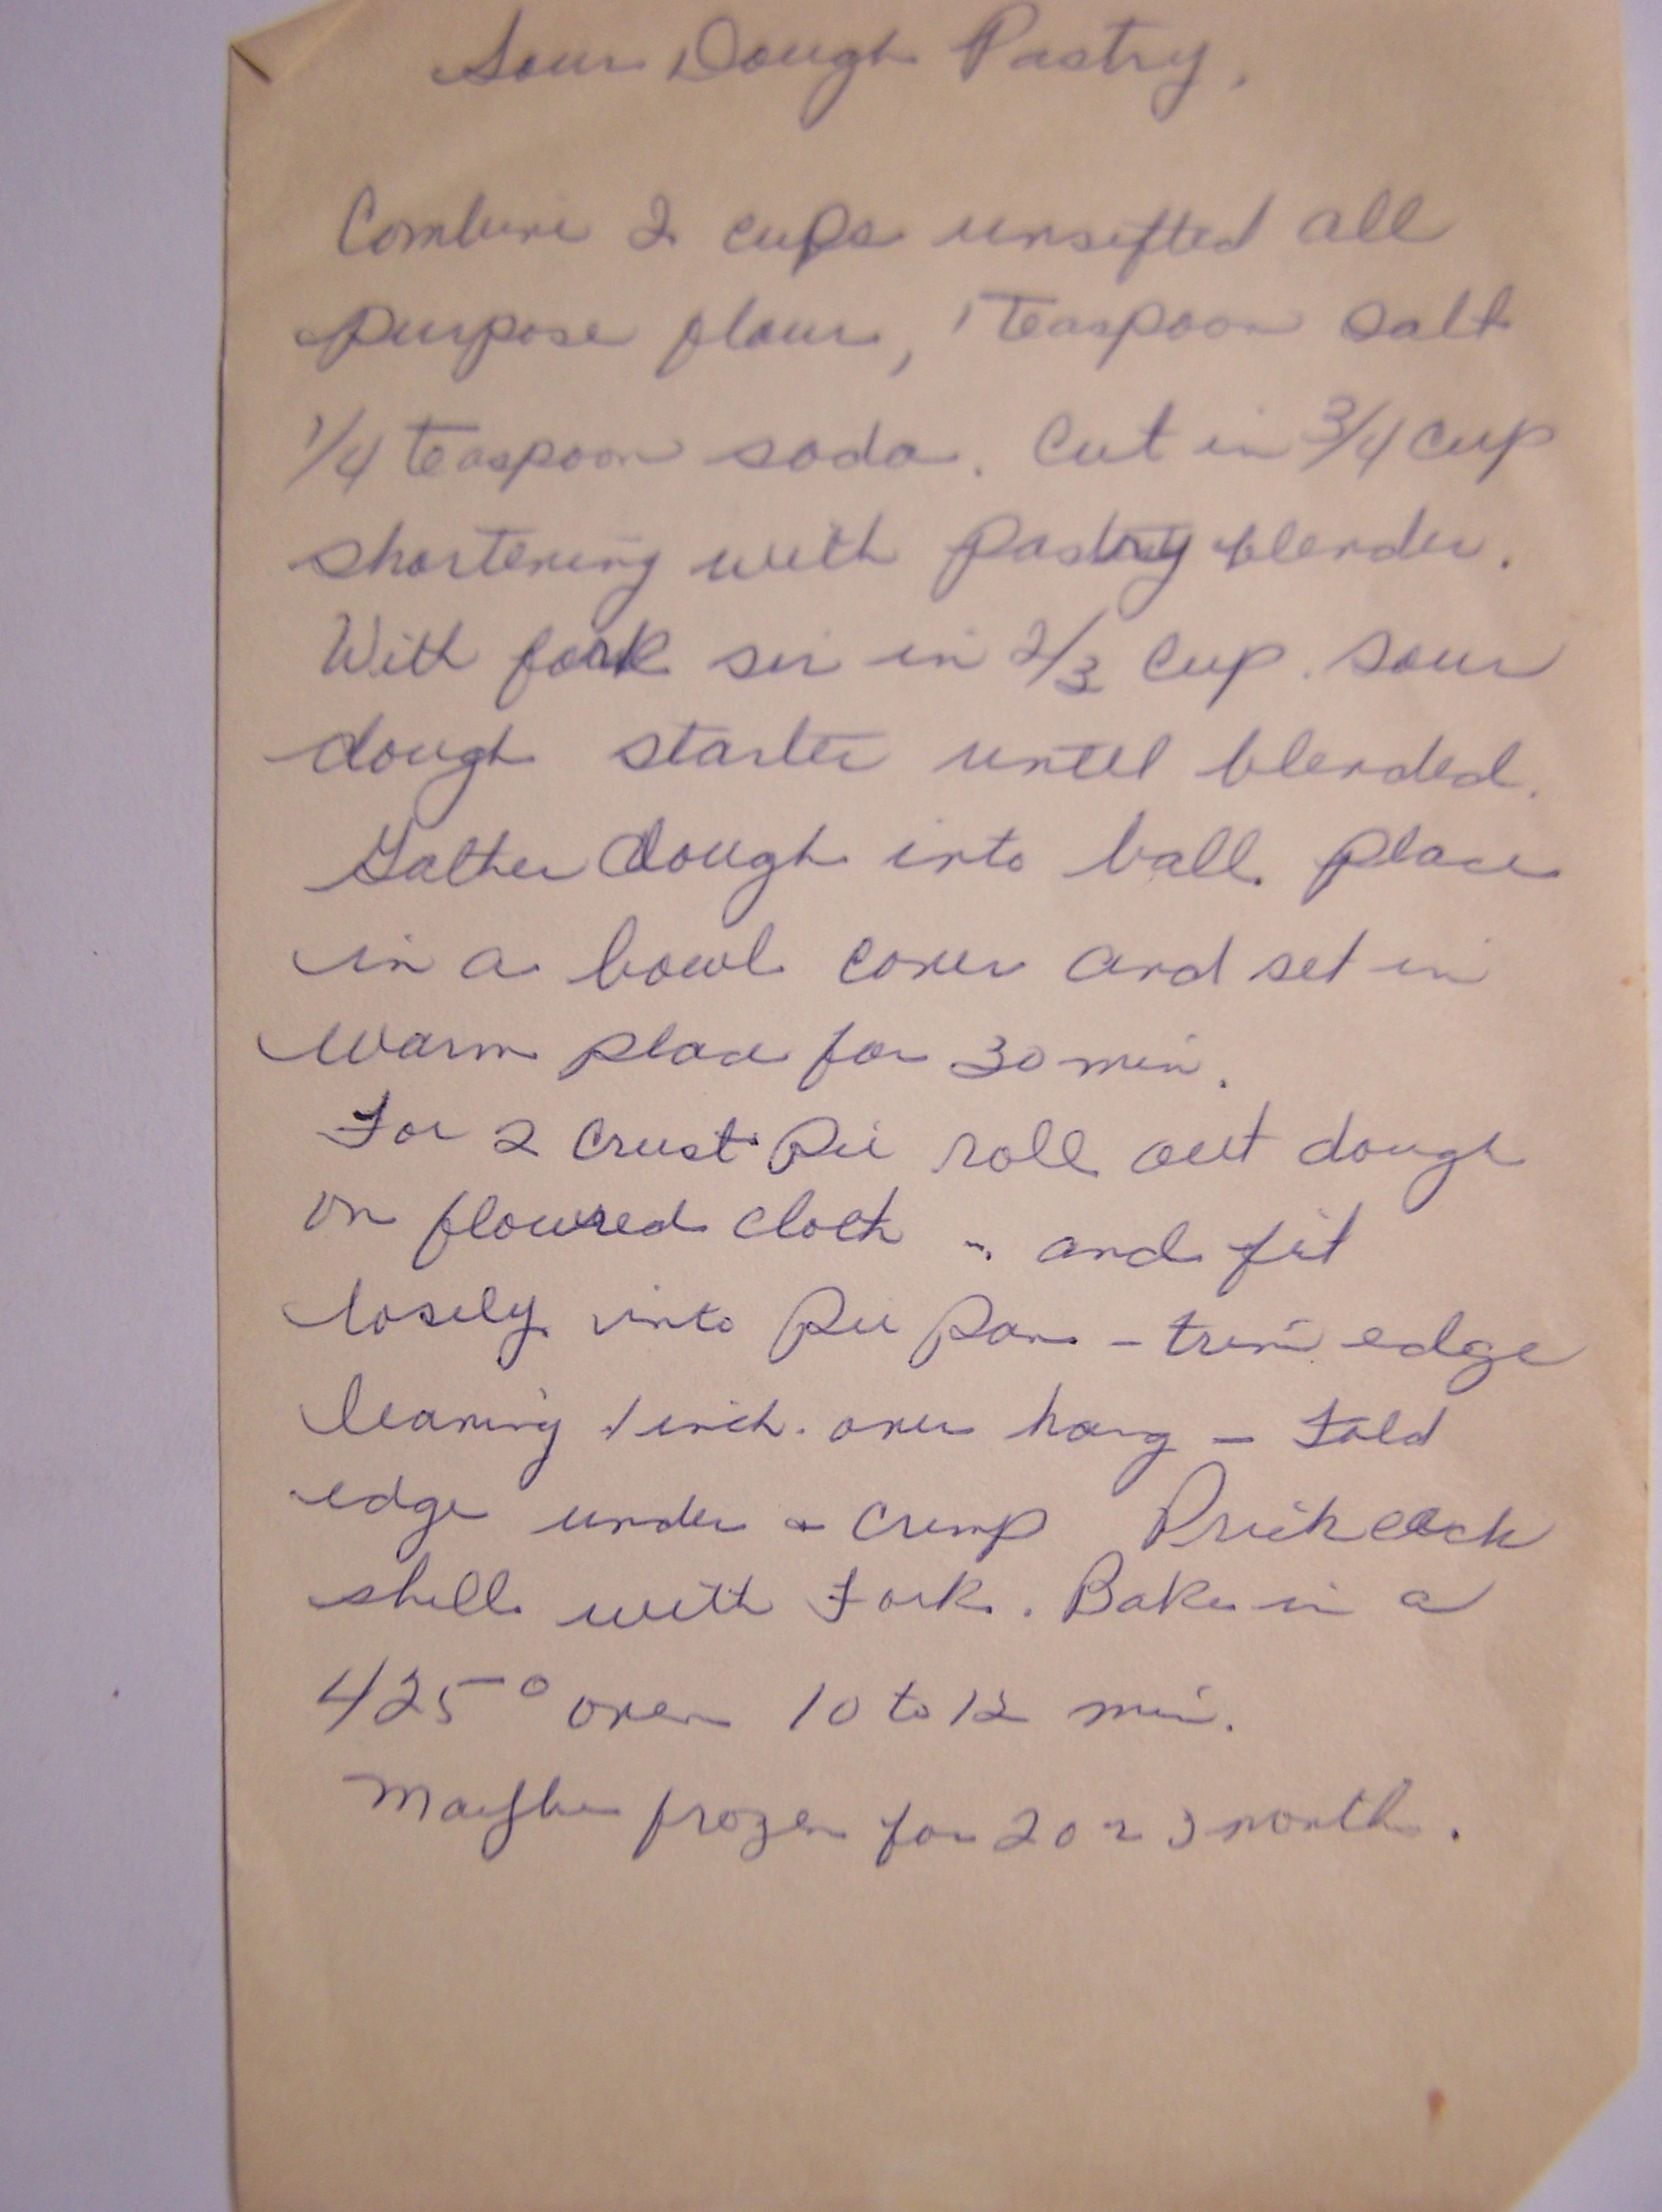 Sour Dough Pastry.
Combine 2 cups unsifted all
purpose flour, 1 Teaspoon salt
1/4 teaspoon soda. Cut in 3/4 cup
shortening with pastry blender.
With fork sir in 2/3 cup. sour
dough starter until blended.
Gather dough into ball. place
in a bowl cover and set in
warm place for 30 min.
For 2 crust Pie roll out dough
on floured cloth - and fit
losely into Pie Pan - trim edge
leaving 1 inch. over hang - Fold
edge under & crimp Prick each
shell with Fork. Bake in a
425° oven 10 to 12 min.
May be frozen for 2 or 3 month.